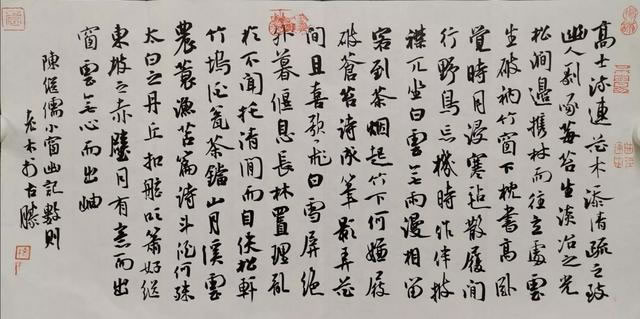 高士流連花木添清疏之致
幽人剥啄莓苔生淡冶之光
松澗邊攜杖而往立處雲
生破衲竹窗下枕書高卧
覺時月浸寒氈散履閒
行野鳥忘機時作伴披
襟兀坐白雲無雨漫相留
客到茶烟起竹下何嫌屐
破蒼苔詩成筆影弄花
間且喜歌飛白雪屏絶
外慕偃息長林置理亂
於不聞托清閒而自佚松軒
竹塢酒瓮茶鐺山月溪雲
農蓑漁罟篇詩斗酒何殊
太白之丹丘扣舷吹簫好繼
東坡之赤壁月有意而出
窗雲無心而出岫
陳繼儒小窗幽記數則
老木於古滕